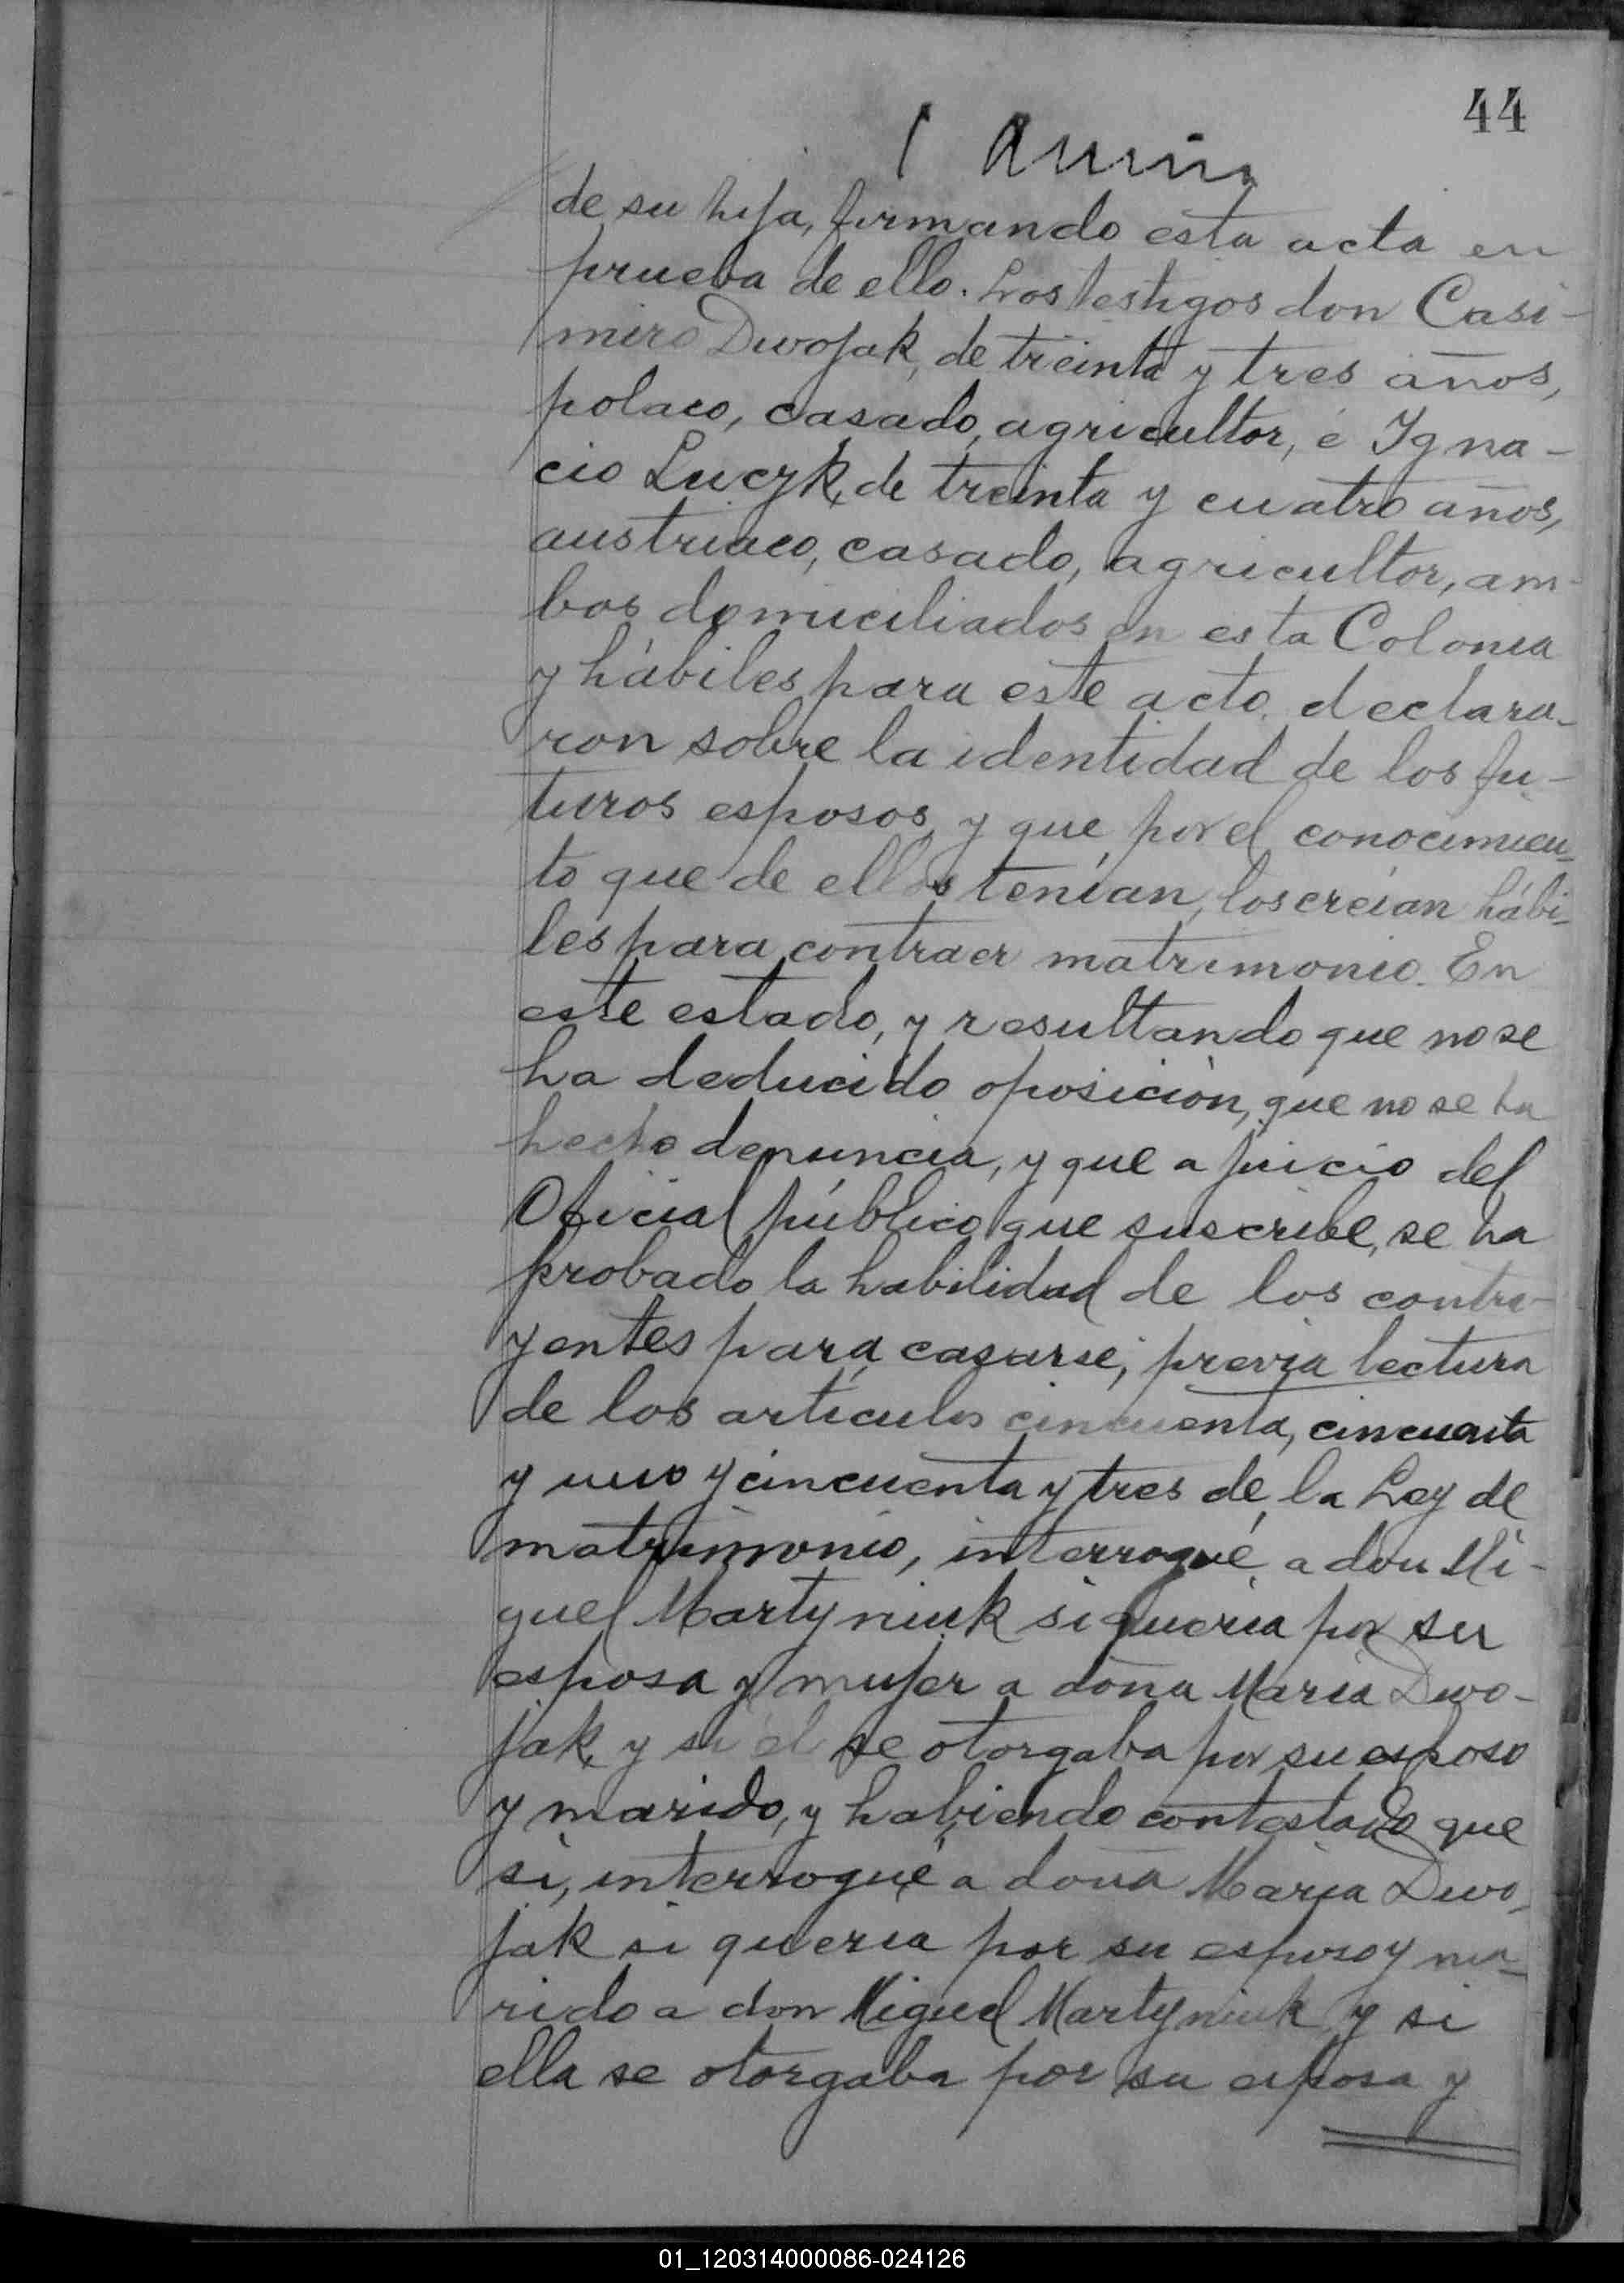 44
de su hija, firmando esta acta en
prueba de ello. Los testigos don Casi-
miro Dwojak, de treinta y tres años,
polaco, casado, agricultor, é Igna-
cio Luczk, de treinta y cuatro años,
austriaco, casado, agricultor, am-
bos domiciliados en esta Colonia
y hábiles para este acto, declara-
ron sobre la identidad de los fu-
turos esposos, y que por el conocimien-
to que de ellos tenían, los creían hábi-
les para contraer matrimonio. En
este estado, y resultando que no se
ha deducido oposición, que no se ha
hecho denuncia, y que a juicio del
Oficial público que suscribe, se ha
probado la habilidad de los contra-
yentes para casarse, previa lectura
de los artículos cincuenta, cincuenta
y uno y cincuenta y tres de la Ley de
matrimonio, interrogué a don Mi-
guel Martyniuk si quería por su
esposa y mujer a doña María Dwo-
jak, y si él se otorgaba por su esposo
y marido, y habiendo contestado que
si, interrogué a doña María Dwo-
jak si quería por su esposo y ma-
rido a don Miguel Martyniuk y si
ella se otorgaba por su esposa y
01_120314000086-024126